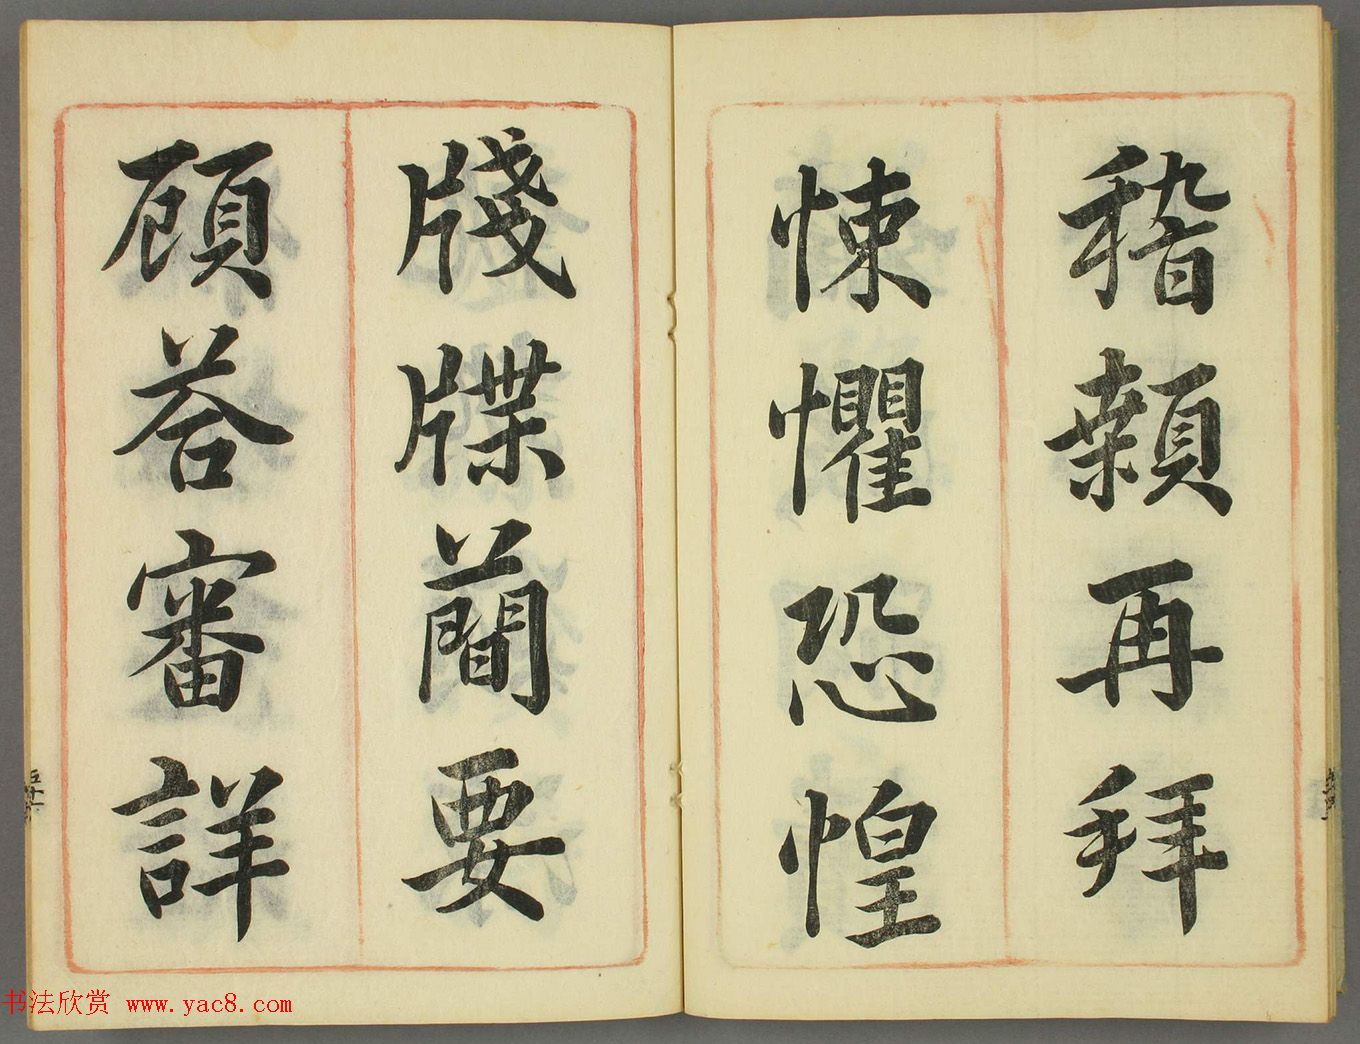 稽顙再拜
悚懼恐惶
牋牒蕳要
顧荅審詳
书法欣赏 www.yac8.com